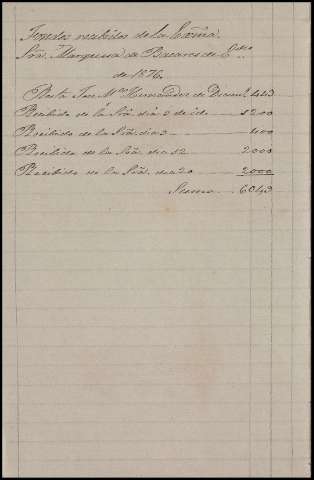 Fondos recibidos de la Exma.
Sra. Marquesa de Bacares de
de 1876.
Resta Jose Ma. Hernandez de Diciem. 443
Recibido de la Sra. dia 2 de id. 1200
Recibido de la Sra. dia 3 400
Recibido de la Sra. dia 12 2000
Recibido de la Sra. dia 20 2000
Suma 6043